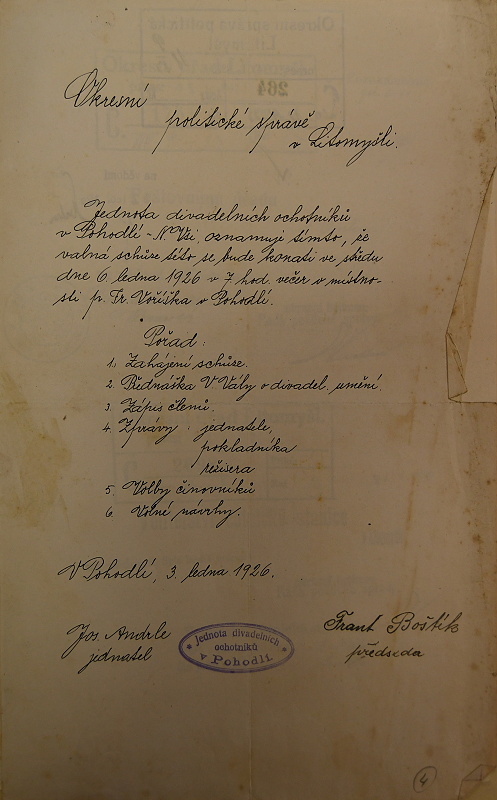 Okresní
politické správě
v Litomyšli.
Jednota divadelních ochotníků
v Pohodlí - N. Vsi, oznamuje tímto, že
valná schůze této se bude konati ve středu
dne 6. ledna 1926 v 7 hod. večer v místno-
sti p. Fr. Voříška v Pohodlí.
Pořad:
1. Zahájení schůze.
2. Přednáška V. Vály o divadel. umění.
3. Zápis členů.
4. Zprávy: jednatele,
pokladníka
režisera
5. Volby činovníků
6. Volné návrhy.
V Pohodlí, 3. ledna 1926.
Jos. Andrle
jednatel
Jednota divadelních
ochotníků
v Pohodlí
Frant Boštík
předseda
4